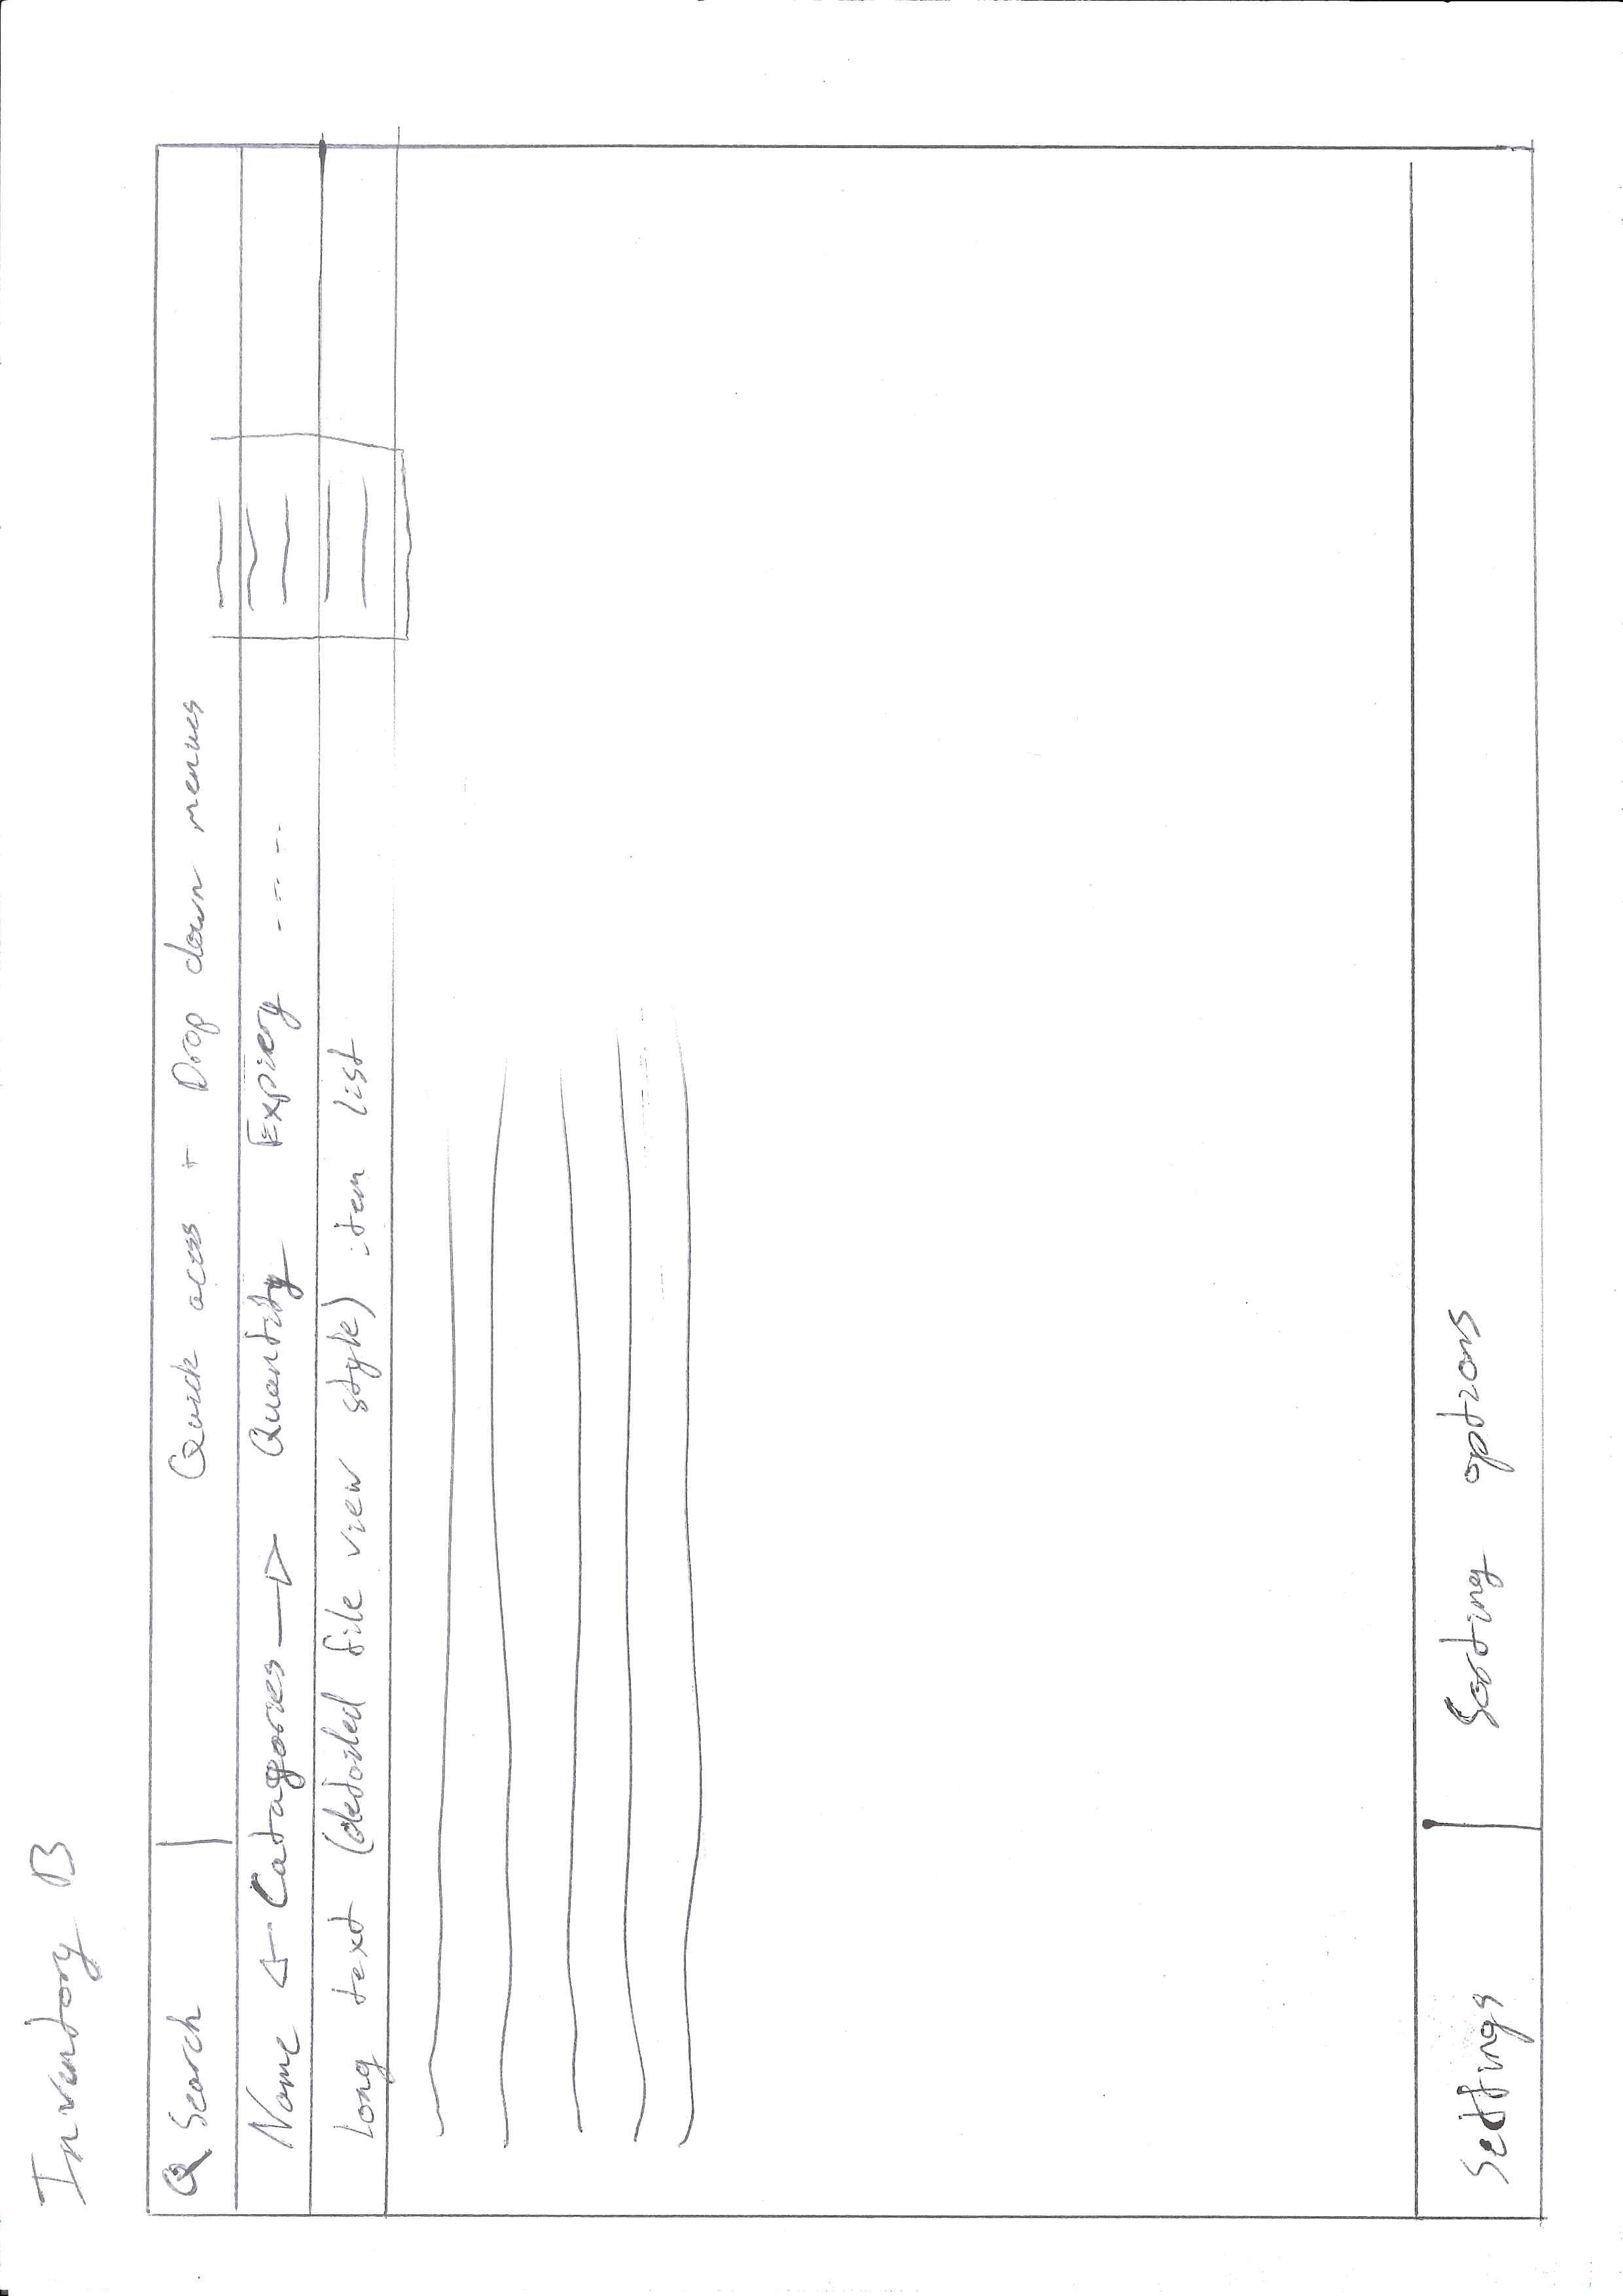 Inventory B
Search Quick acess + Drop down menues
Name Catagories Quantity Expiery ----
Long text (detailed file view style) item list
Settings Sorting options